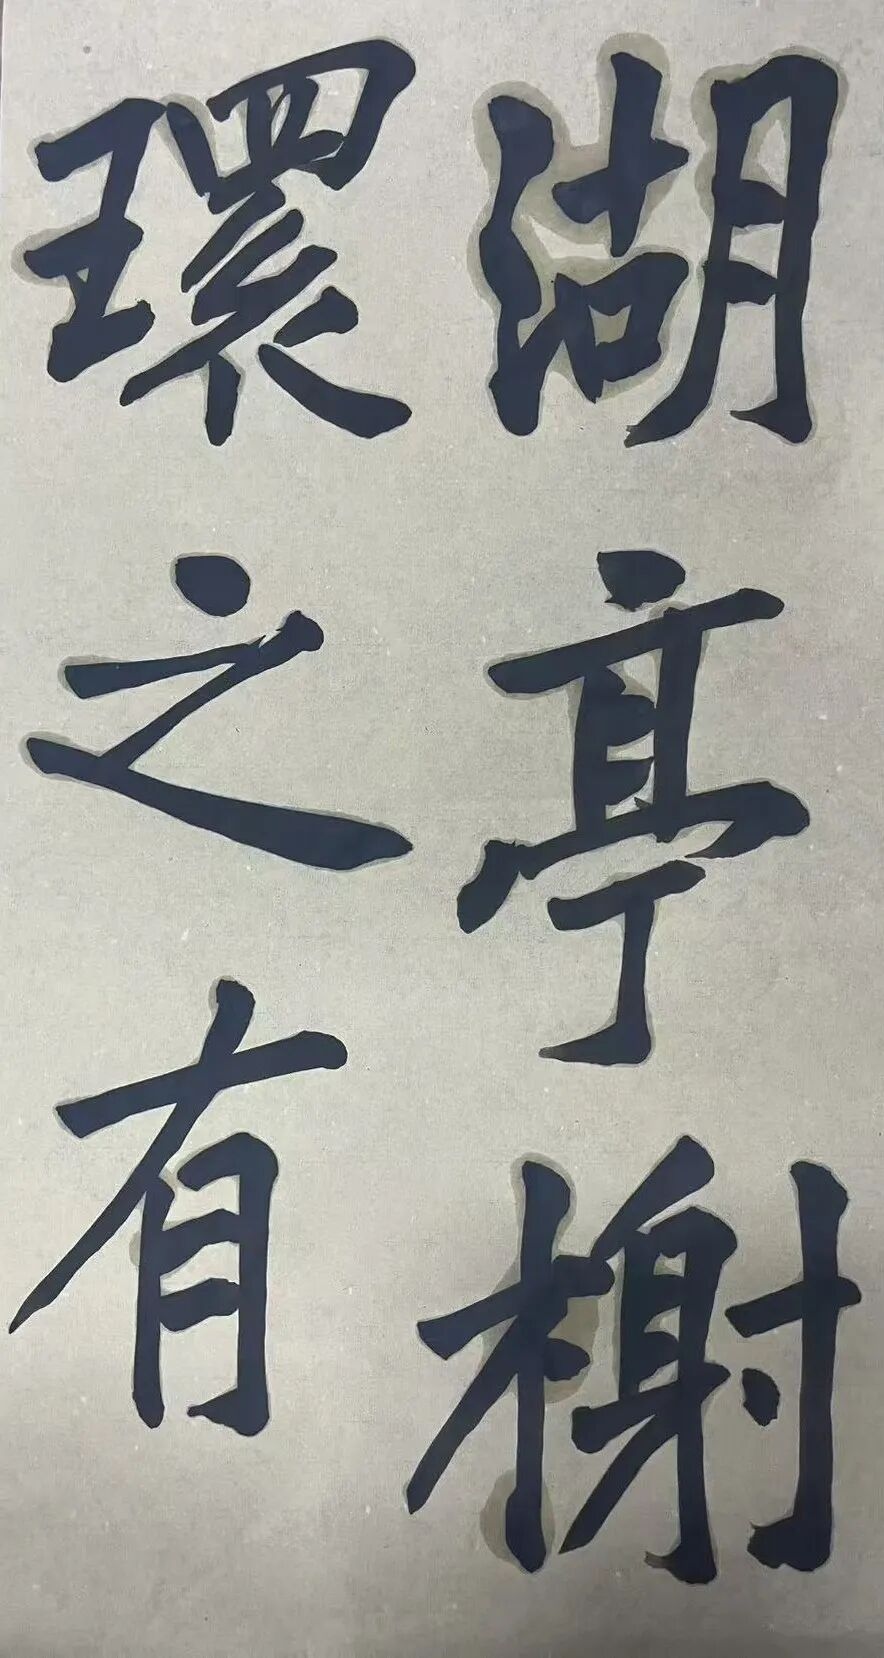 湖亭榭
環之有